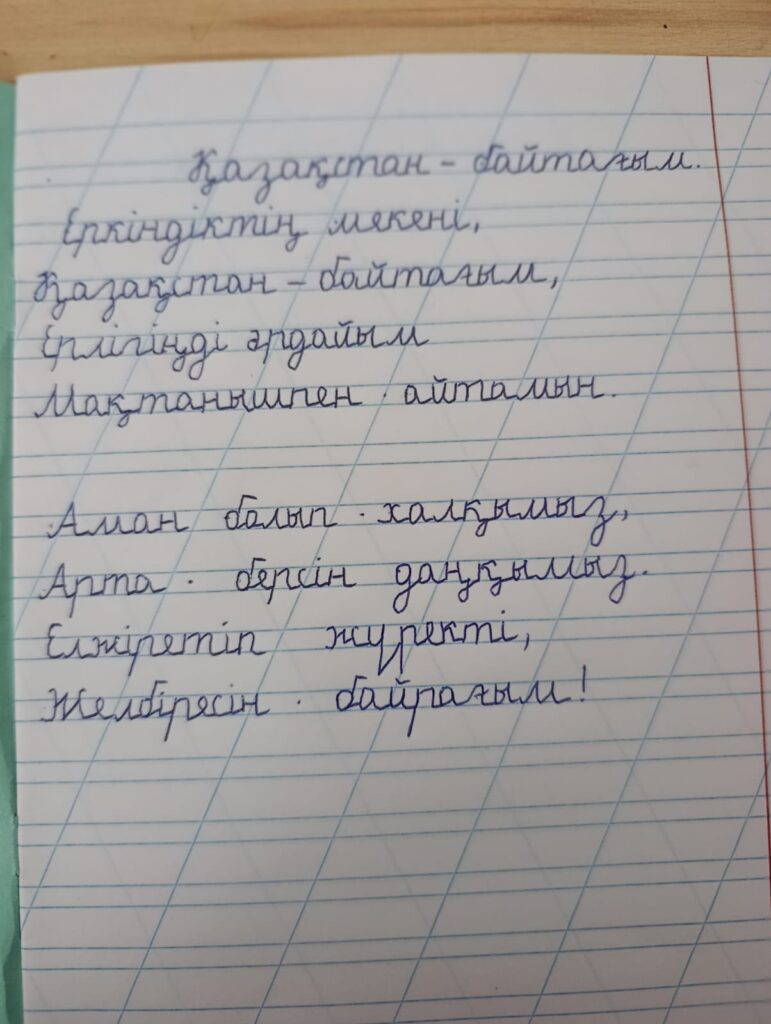 Қазақстан – байтағым.
Еркіндіктің мекені,
Қазақстан – байтағым,
Ерлігіңді әрдайым
Мақтанышпен айтамын.
Аман болып халқымыз,
Арта берсін даңқымыз.
Елжіретіп жүректі,
Желбіресін байрағым!